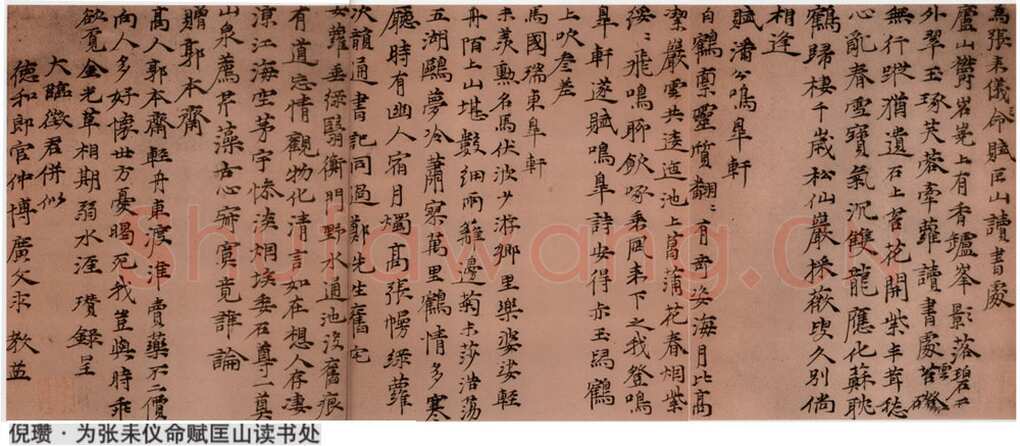 為張耒儀命賦匡山讀書處
廬山欝岧嶤上有香鑪峯影落碧天
外翠玉琢芙蓉牽蘿讀書處苔磴
無行蹤猶遺石上苔花開紫丰茸愁
心亂春雪寶氣沉雙龍應化蘇耽
鶴歸棲千歲松仙巖採薇叟久別倘
相逢
賦潘公鳴皐軒
白鶴禀靈質翻〻有奇姿海月比高
潔巖雲共逶迤池上菖蒲花春烟紫
綏〻飛鳴聊飲啄乘風來下之我登鳴
皐軒遂賦鳴皐詩安得赤玉舄鶴
上吹參差
馬國瑞東皐軒
未羨勳名馬伏波少游鄉里樂婆娑輕
舟陌上山堪數細雨籬邊菊未莎浩蕩
五湖鷗夢冷蕭寥萬里鶴情多寒
廳時有幽人宿月燭高張幔綠蘿
次韻通書記同過鄭先生舊宅
女蘿垂綠翳衡門野水通池沒舊痕
有道忘情觀物化清言如在想人存凄
涼江海空茅宇慘淡烟埃委石尊一奠
山泉薦芹藻古心寂寞竟誰論
贈郭本齋
高人郭本齋輕舟車渡淮賣藥不二價
向人多好懷世方憂暍死我豈與時乖
欲覓金光草相期弱水涯 瓚錄呈
大臨徵君併似
德和郎官仲博廣文求 教益
Shufawang.CN
倪瓒·为张耒仪命赋匡山读书处